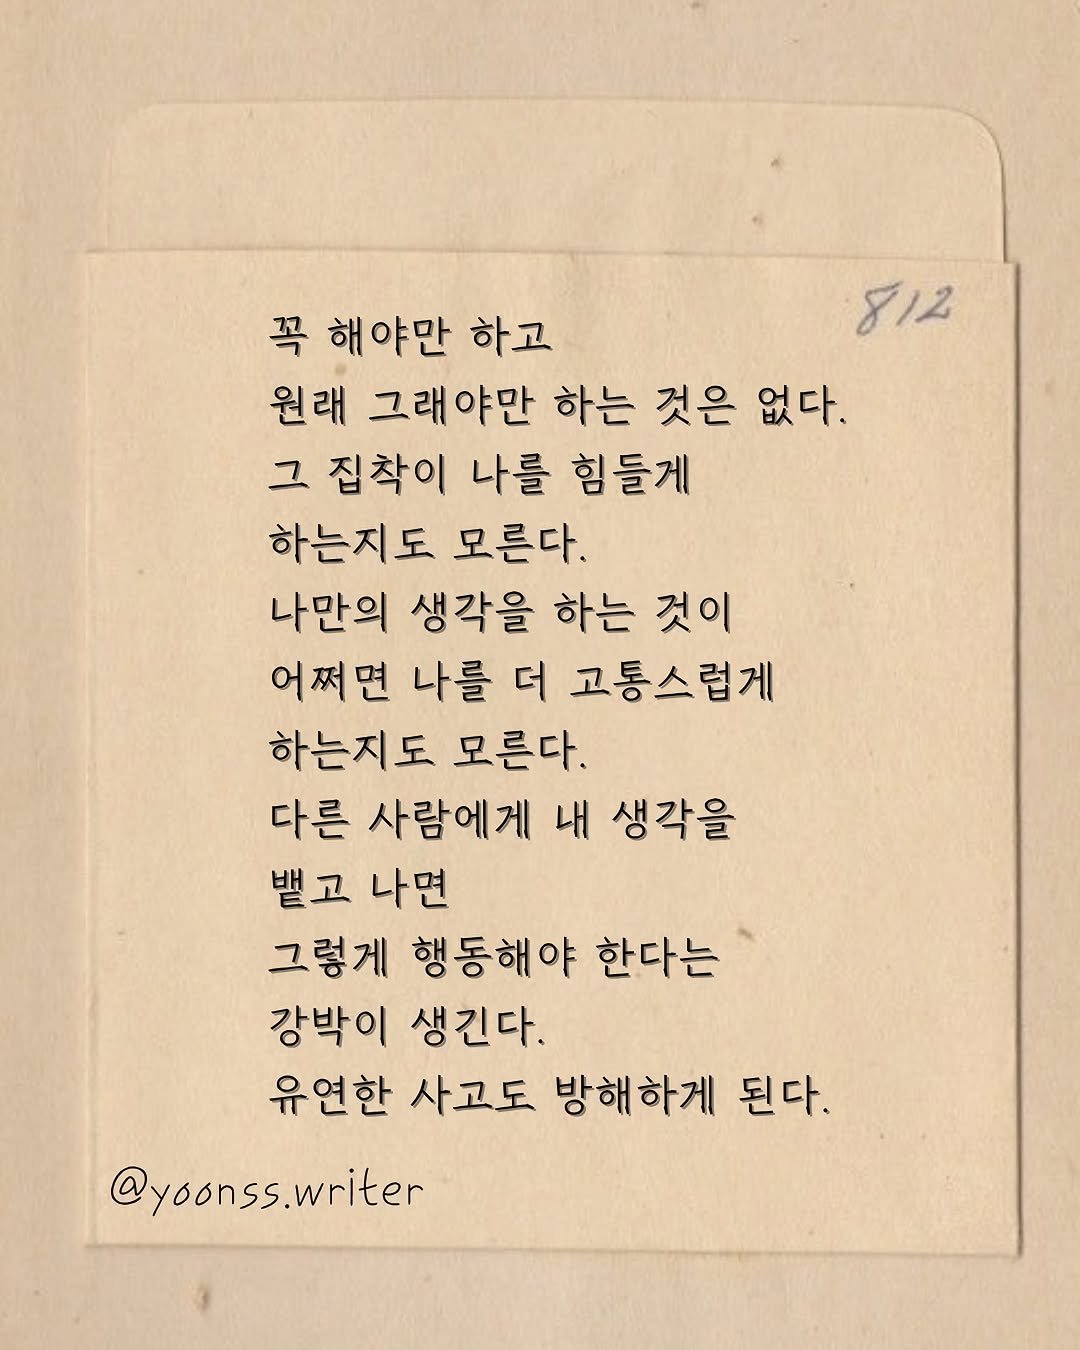 812
꼭 해야만 하고
원래 그래야만 하는 것은 없다.
그 집착이 나를 힘들게
하는지도 모른다.
나만의 생각을 하는 것이
어쩌면 나를 더 고통스럽게
하는지도 모른다.
다른 사람에게 내 생각을
뱉고 나면
그렇게 행동해야 한다는
강박이 생긴다.
유연한 사고도 방해하게 된다.
@yoonss.writer